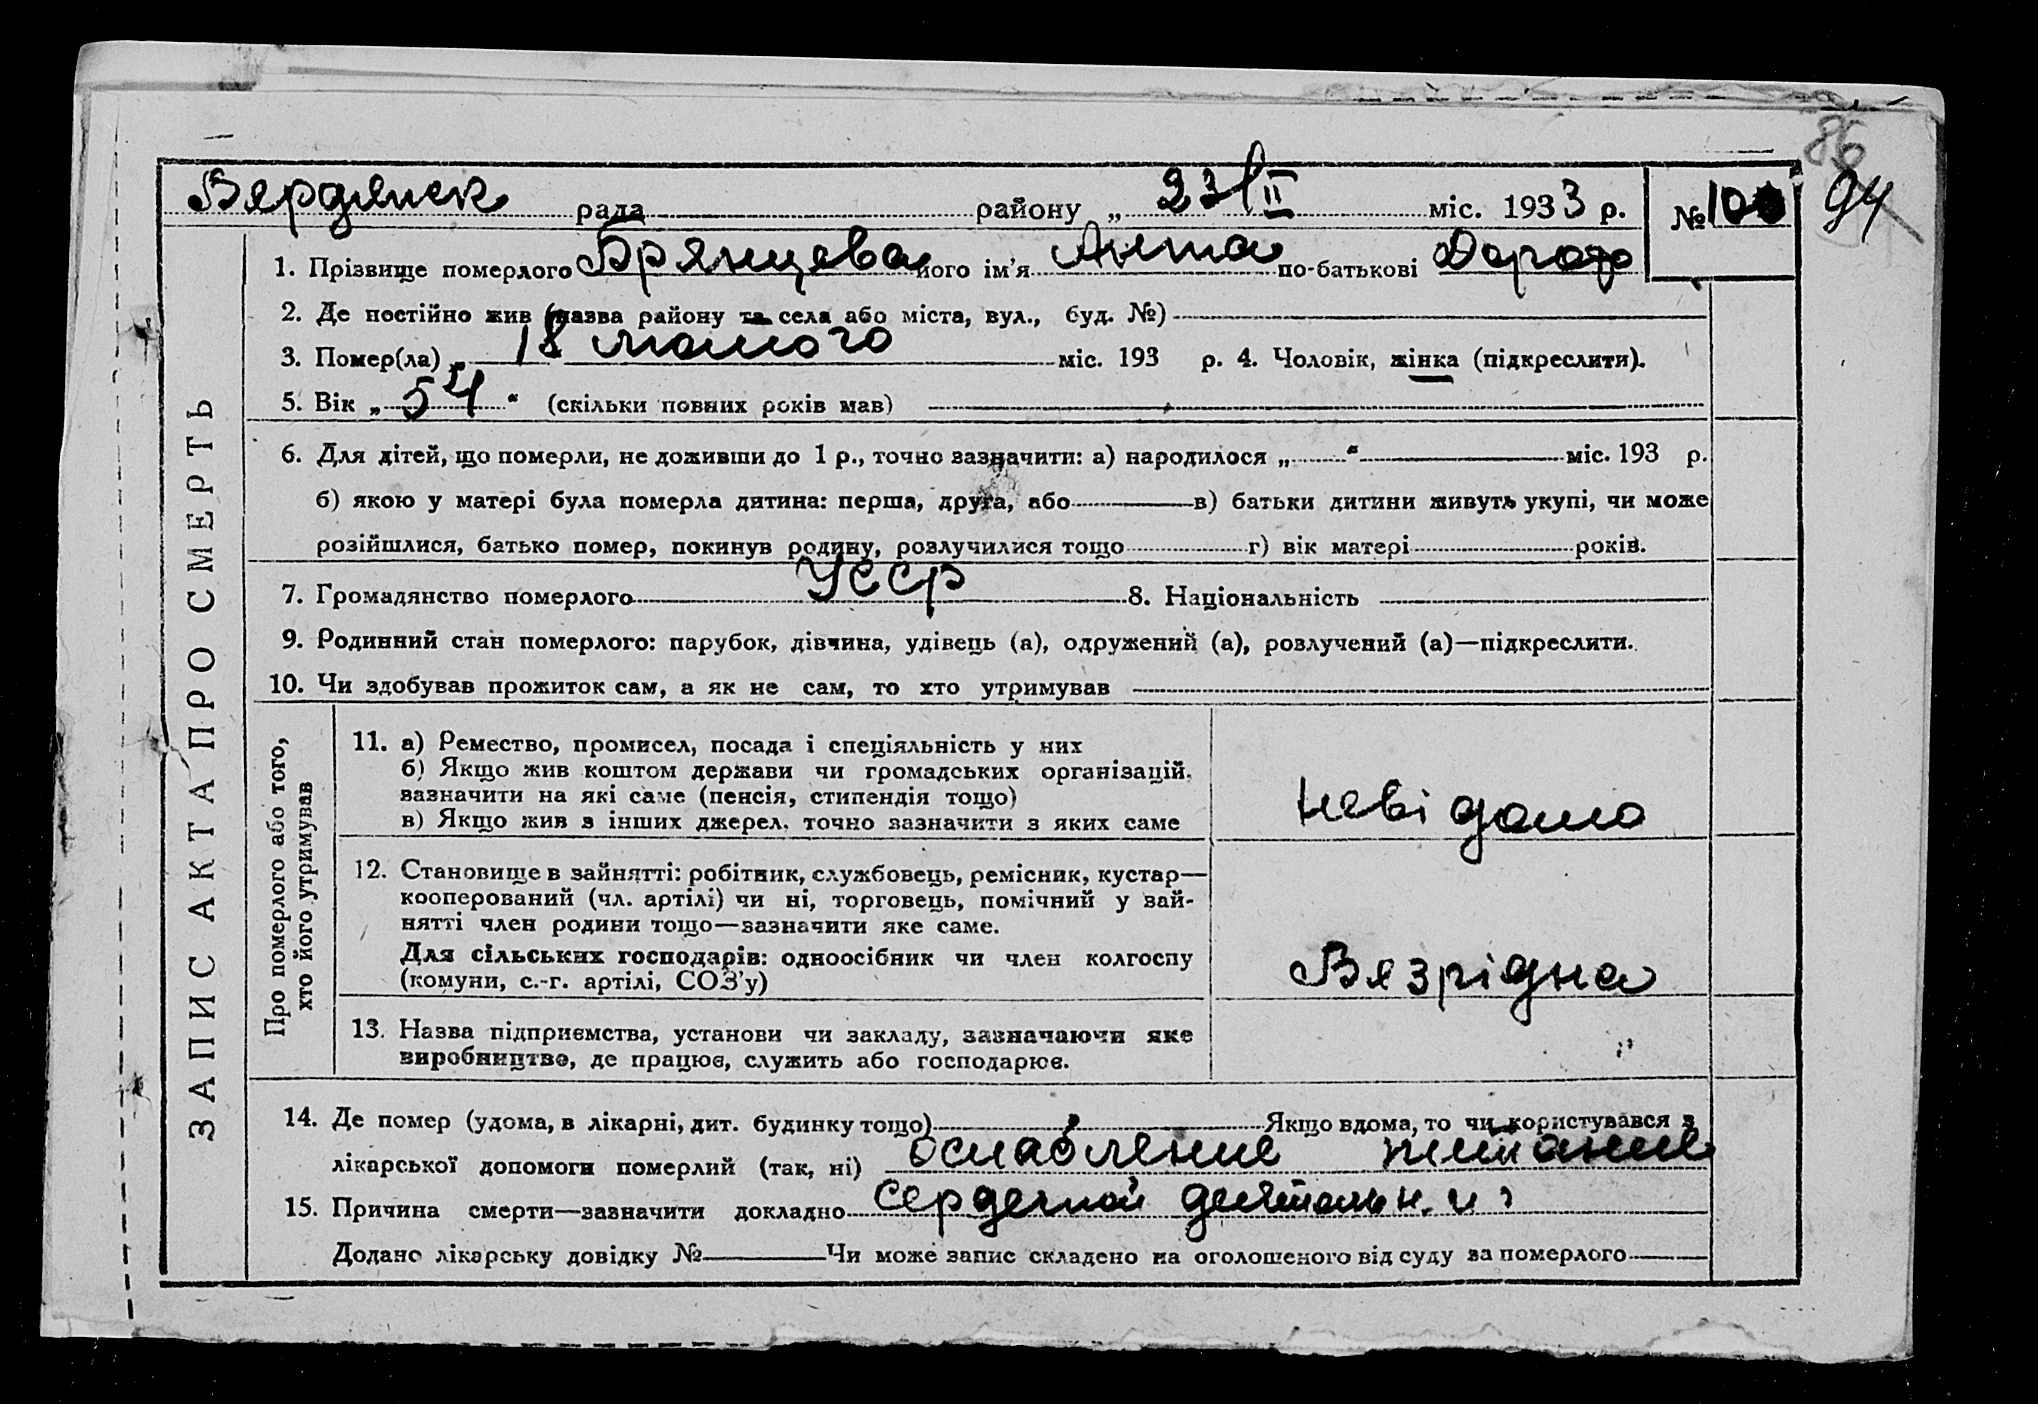 86
94
Бердянск рада району „ 23/II міс. 1933 р. № 100
1. Прізвище померлого Брянцева його ім'я Анна по-батькові
2. Де постійно жив (назва району та села або міста, вул., буд. №)
3. Помер(ла) „ 18 лютого міс. 193 р. 4. Чоловік, жінка (підкреслити).
5. Вік „ 54 “ (скільки повних років мав)
6. Для дітей, що померли, не доживши до 1 р., точно зазначити: а) народилося „ “ міс. 193 р.
б) якою у матері була померла дитина: перша, друга, або в) батьки дитини живуть укупі, чи може
розійшлися, батько помер, покинув родину, розлучилися тощо г) вік матері років.
7. Громадянство померлого УССР 8. Національність
9. Родинний стан померлого: парубок, дівчина, удівець (а), одружений (а), розлучений (а)—підкреслити.
10. Чи здобував прожиток сам, а як не сам, то хто утримував
ЗАПИС АКТА ПРО СМЕРТЬ
Про померлого або того,
хто його утримував
11. а) Ремество, промисел, посада і спеціяльність у них
б) Якщо жив коштом держави чи громадських організацій,
зазначити на які саме (пенсія, стипендія тощо)
в) Якщо жив з інших джерел, точно зазначити з яких саме
невідомо
12. Становище в зайнятті: робітник, службовець, ремісник, кустар—
кооперований (чл. артілі) чи ні, торговець, помічний у зай-
нятті член родини тощо—зазначити яке саме.
Для сільських господарів: одноосібник чи член колгоспу
(комуни, с.-г. артілі, СОЗ'у)
Безрідна
13. Назва підприємства, установи чи закладу, зазначаючи яке
виробництво, де працює, служить або господарює.
14. Де помер (удома, в лікарні, дит. будинку тощо) Якщо вдома, то чи користувався з
лікарської допомоги померлий (так, ні) ослабление питание
15. Причина смерти—зазначити докладно сердечной деятельн. и
Додано лікарську довідку № Чи може запис складено на оголошеного від суду за померлого